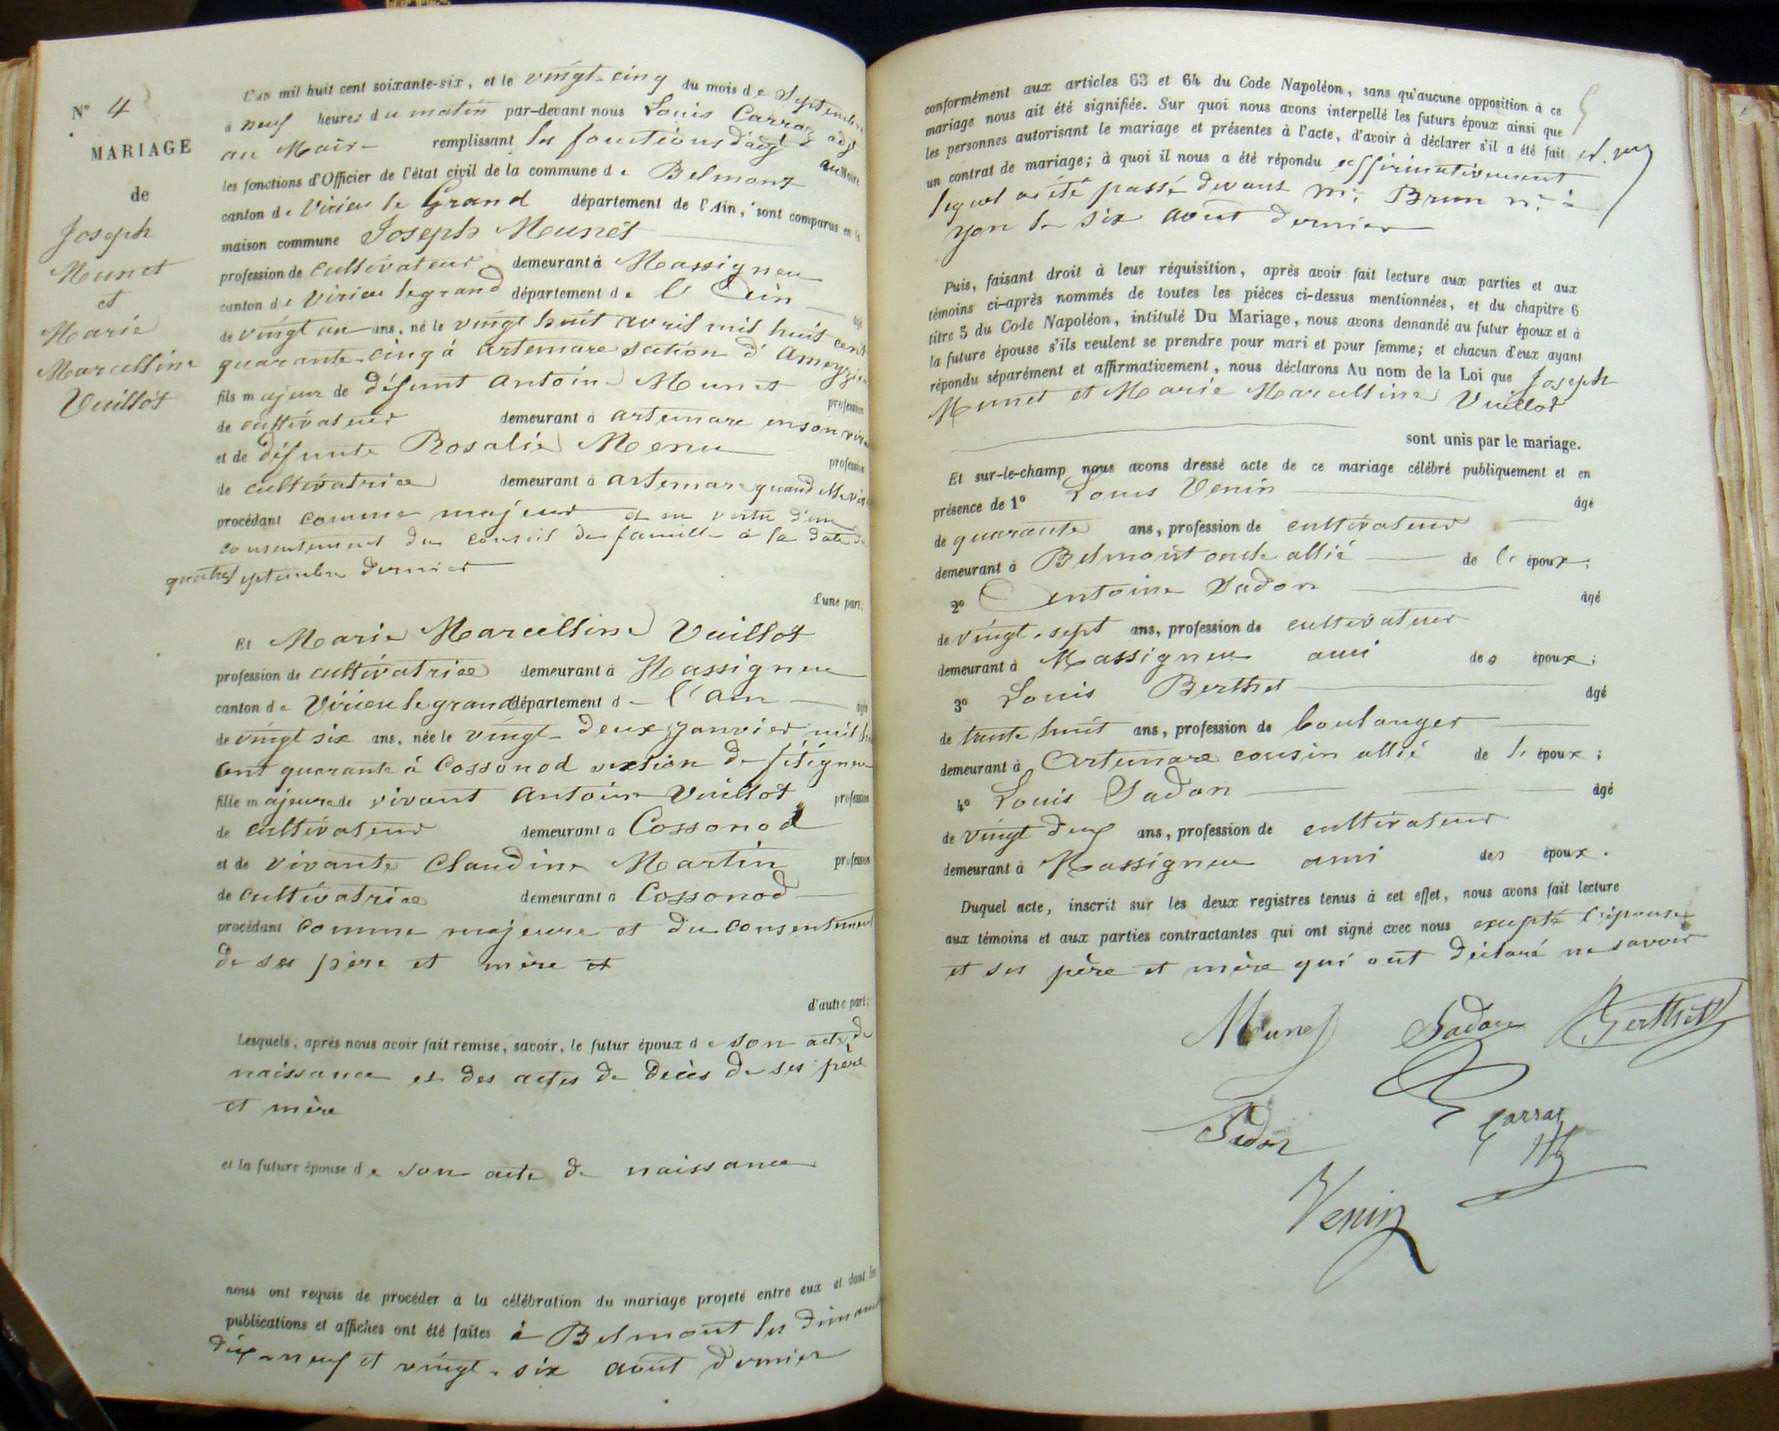 N° 4
MARIAGE
de
Joseph
Munet
et
Marie
Marcelline
Vuillot
L'an mil huit cent soixante-six, et le vingt-cinq du mois de Septembre
à neuf heures du matin par-devant nous Louis Carraz adj
au Maire remplissant les fonctions d'adj au Maire
les fonctions d'Officier de l'état civil de la commune de Belmont
canton de Virieu le Grand département de l'Ain, sont comparus en la
maison commune Joseph Munet
profession de cultivateur demeurant à Massigneu
canton de Virieu legrand département de l'Ain âgé
de vingt un ans, né le vingt huit avril mil huit cent
quarante-cinq à artemare section d'Ameyzieu
fils majeur de défunt antoine Munet profession
de cultivateur demeurant à artemare en son viva
et de défunte Rosalie Menu profession
de cultivatrice demeurant à artemare quand elle viva
procédant comme majeur et en vertu d'un
consentement du conseil de famille à la date du
quatre septembre dernier
d'une part;
Et Marie Marcelline Vuillot
profession de cultivatrice demeurant à Massigneu
canton de Virieu le grand département de l'ain âgée
de vingt six ans, née le vingt-deux janvier mil hu
cent quarante à Cossonod section de fitigneu
fille majeure de vivant antoine Vuillot profession
de cultivateur demeurant à Cossonod
et de vivante Claudine Martin profession
de cultivatrice demeurant à Cossonod
procédant comme majeure et du consentement
de ses père et mère et
d'autre part;
Lesquels, après nous avoir fait remise, savoir, le futur époux de son acte de
naissance et des actes de décès de ses père
et mère
et la future épouse de son acte de naissance
nous ont requis de procéder à la célébration du mariage projeté entre eux et dont les
publications et affiches ont été faites à Belmont les diman
dix-neuf et vingt-six août dernier
conformément aux articles 63 et 64 du Code Napoléon, sans qu'aucune opposition à ce
mariage nous ait été signifiée. Sur quoi nous avons interpellé les futurs époux ainsi que
les personnes autorisant le mariage et présentes à l'acte, d'avoir à déclarer s'il a été fait
un contrat de mariage; à quoi il nous a été répondu affirmativement
lequel a été passé devant Me Brun Nre à
yon le six août dernier
Puis, faisant droit à leur réquisition, après avoir fait lecture aux parties et aux
témoins ci-après nommés de toutes les pièces ci-dessus mentionnées, et du chapitre 6
titre 5 du Code Napoléon, intitulé Du Mariage, nous avons demandé au futur époux et à
la future épouse s'ils veulent se prendre pour mari et pour femme; et chacun d'eux ayant
répondu séparément et affirmativement, nous déclarons Au nom de la Loi que Joseph
Munet et Marie Marcelline Vuillot
sont unis par le mariage.
Et sur-le-champ nous avons dressé acte de ce mariage célébré publiquement et en
présence de 1° Louis Venin âgé
de quarante ans, profession de cultivateur
demeurant à Belmont oncle allié de l'époux;
2° Antoine Sadon âgé
de vingt-sept ans, profession de cultivateur
demeurant à Massigneu ami des époux;
3° Louis Berthet âgé
de trente huit ans, profession de boulanger
demeurant à Artemare cousin allié de l'époux;
4° Louis Sadon âgé
de vingt deux ans, profession de cultivateur
demeurant à Massigneu ami des époux.
Duquel acte, inscrit sur les deux registres tenus à cet effet, nous avons fait lecture
aux témoins et aux parties contractantes qui ont signé avec nous excepté l'épouse
et ses père et mère qui ont déclaré ne savoir
Munet Sadon Berthet
Sadon Carraz
Venin